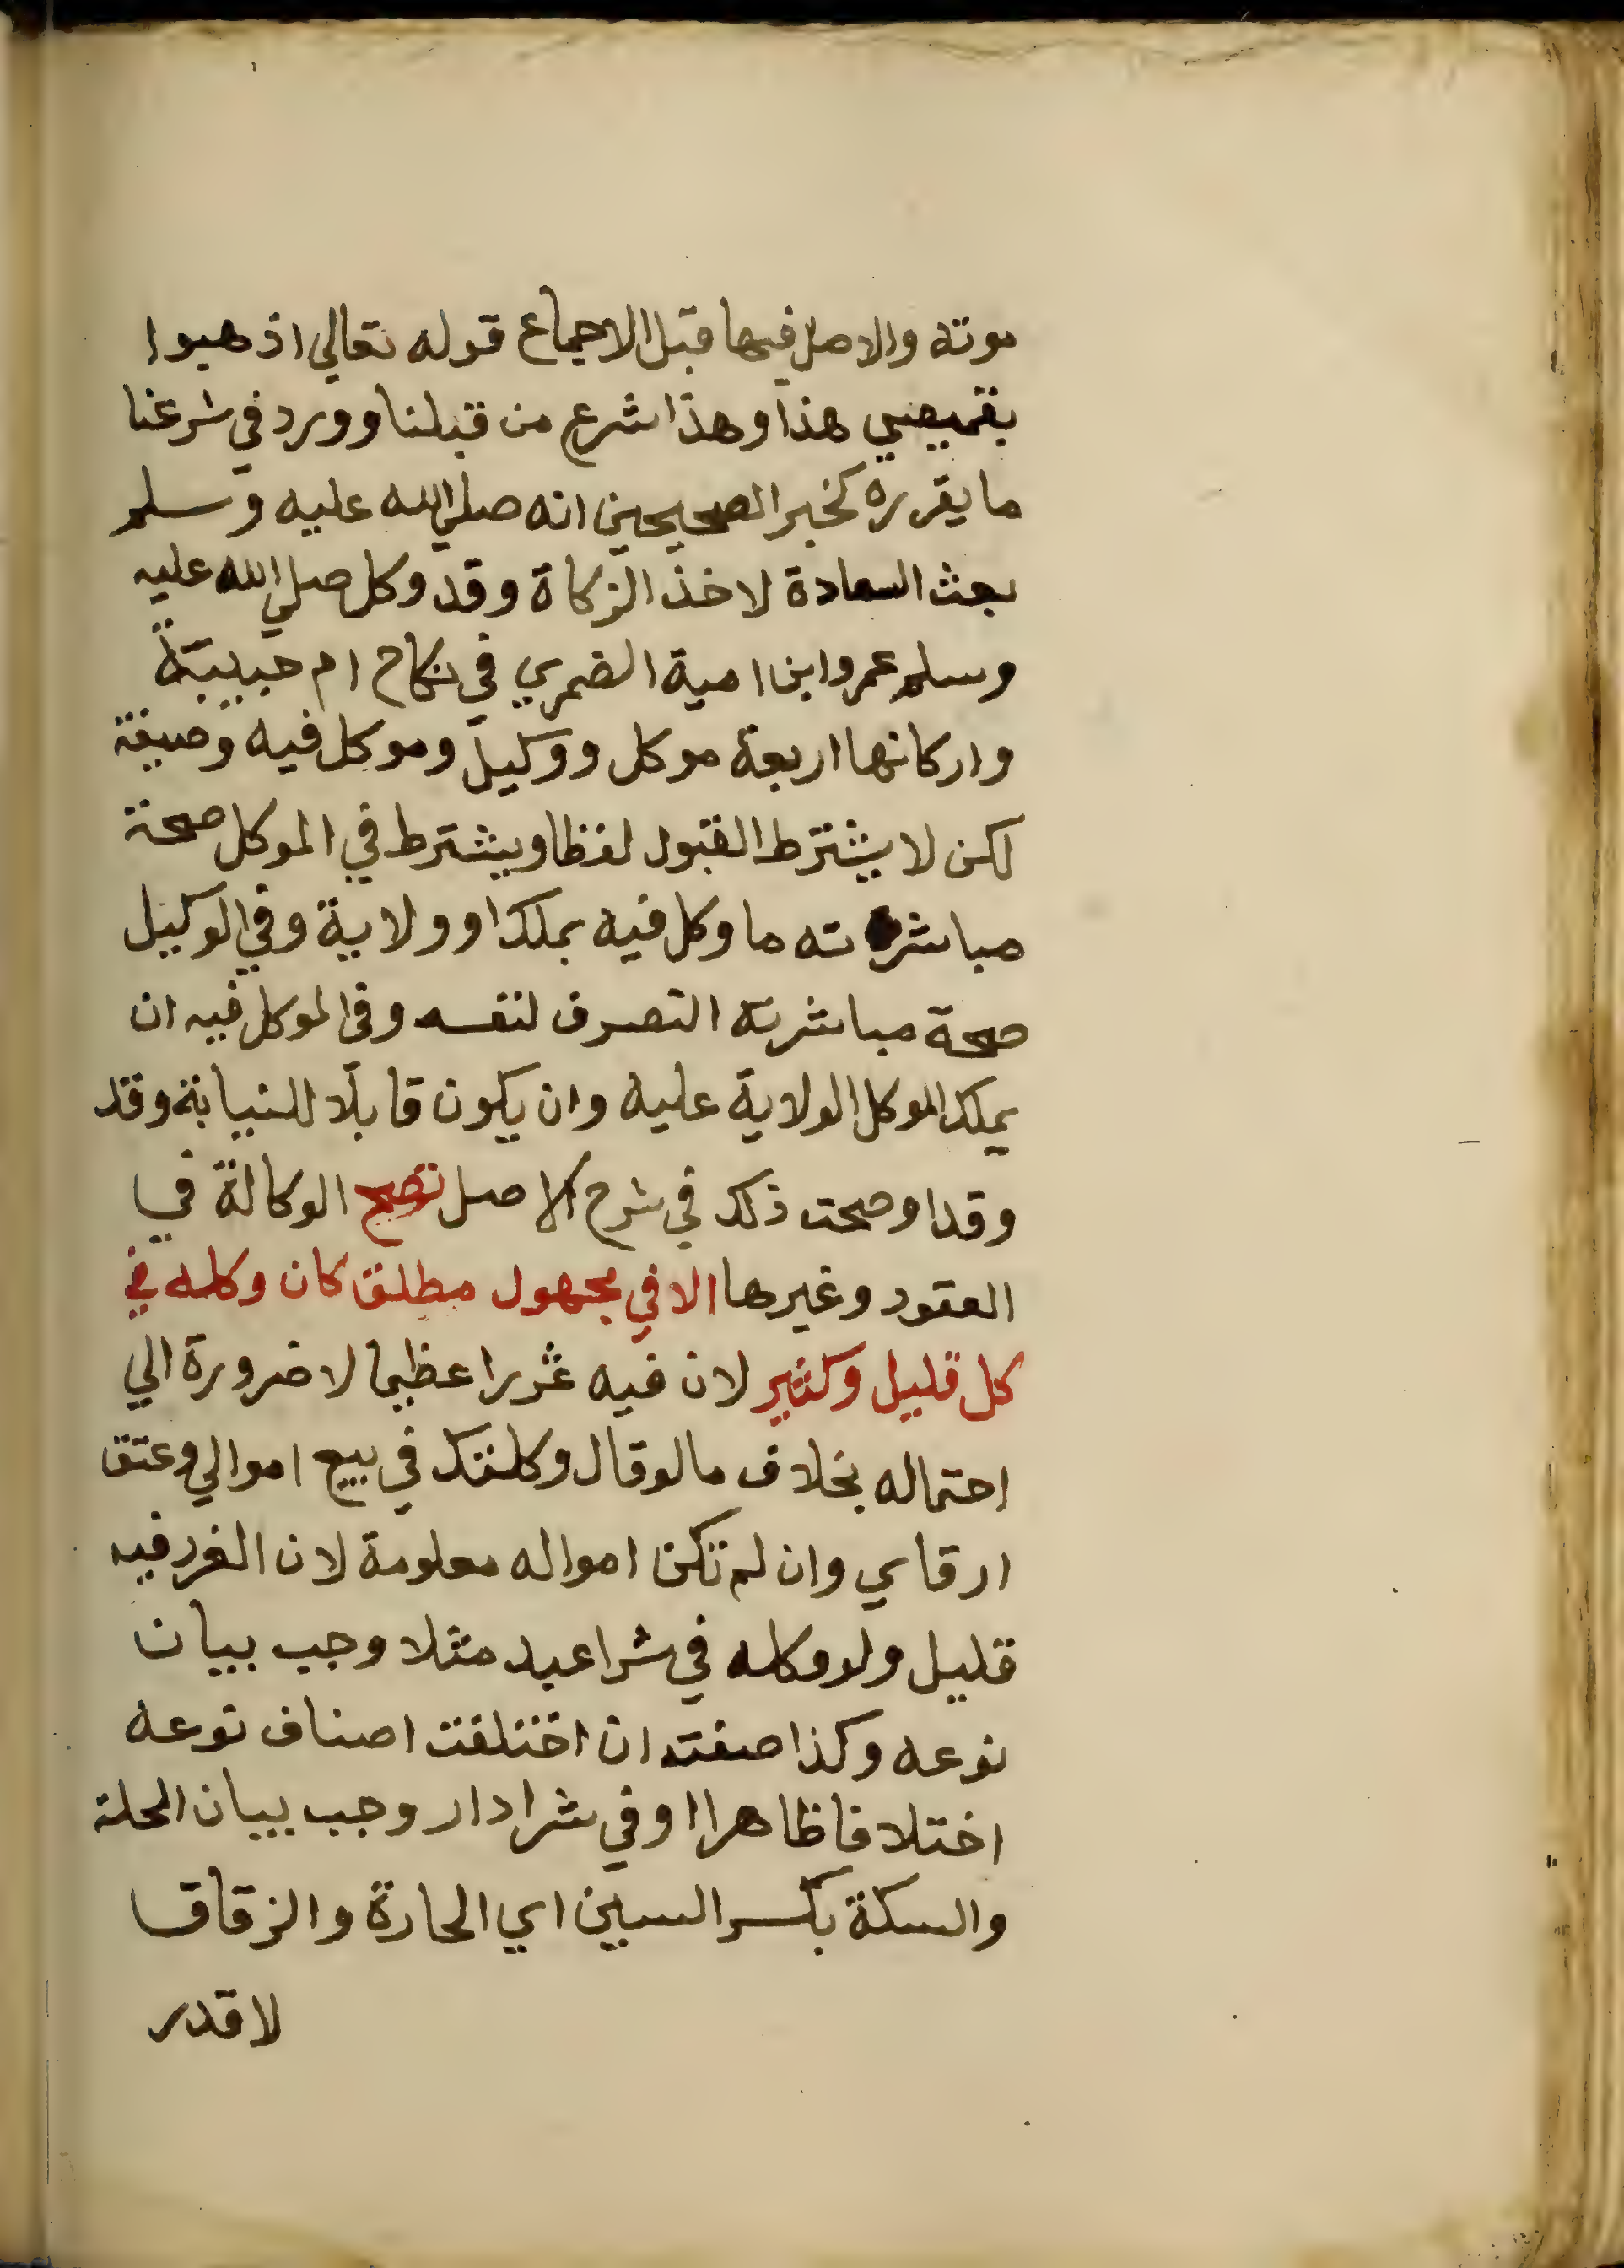 موته والاصل فيها قبل الاجماع قوله تعالي اذهبوا
بقميصي هذا وهذا شرع من قبلنا وورد في شرعنا
ما يقرره كخبر الصحيحين انه صلي الله عليه وسلم
بعث السعادة لاخذ الزكاة وقد وكل صلي الله عليه
وسلم عمروا بن امية الضمري في نكاح ام حبيبة
واركانها اربعة موكل ووكيل وموكل فيه وصيغة
لكن لا يشترط القبول لفظا ويشترط في الموكل صحة
مباشرته ما وكل فيه بملك او ولاية وفي الوكيل
صحة مباشرته التصرف لنفسه وفي الموكل فيه ان
يملك الموكل الولاية عليه وان يكون قابلا للنيابة وقد
وقد اوضحت ذلك في شرح الاصل تصح الوكالة في
العقود وغيرها الا في مجهول مطلق كان وكله في
كل قليل وكثير لان فيه غررا عظيما لا ضرورة الي
احتماله بخلاف ما لو قال وكلتك في بيع اموالي وعتق
ارقاي وان لم تكن امواله معلومة لان الغرر فيه
قليل ولو وكله في شرا عبد مثلا وجب بيان
نوعه وكذا صفته ان اختلفت اصناف نوعه
اختلافا ظاهرا او في شرا دار وجب بيان المحلة
والسكة بكسر السين اي الحارة والزقاق
لا قدر